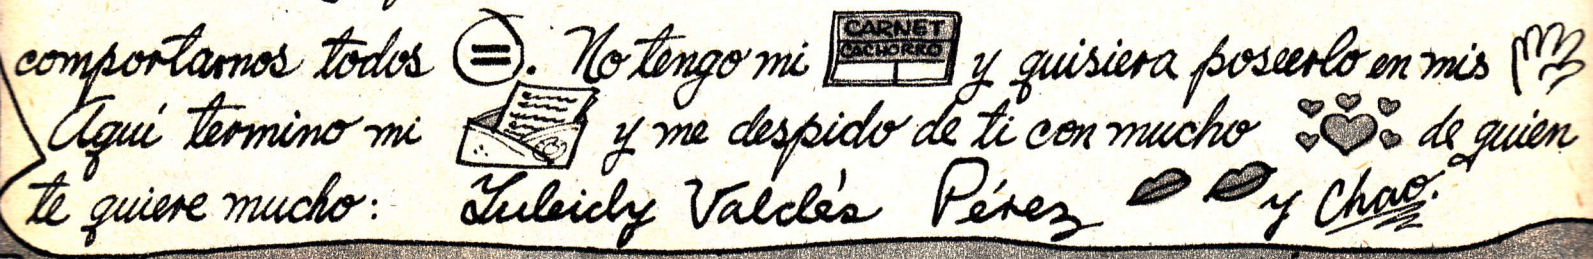 comportamos todos =. No tengo mi CARNET CACHORRO y quisiera poseerlo en mis
Aquí termino mi y me despido de ti con mucho de quien
te quiere mucho: Yuleidy Valdés Pérez y Chao.